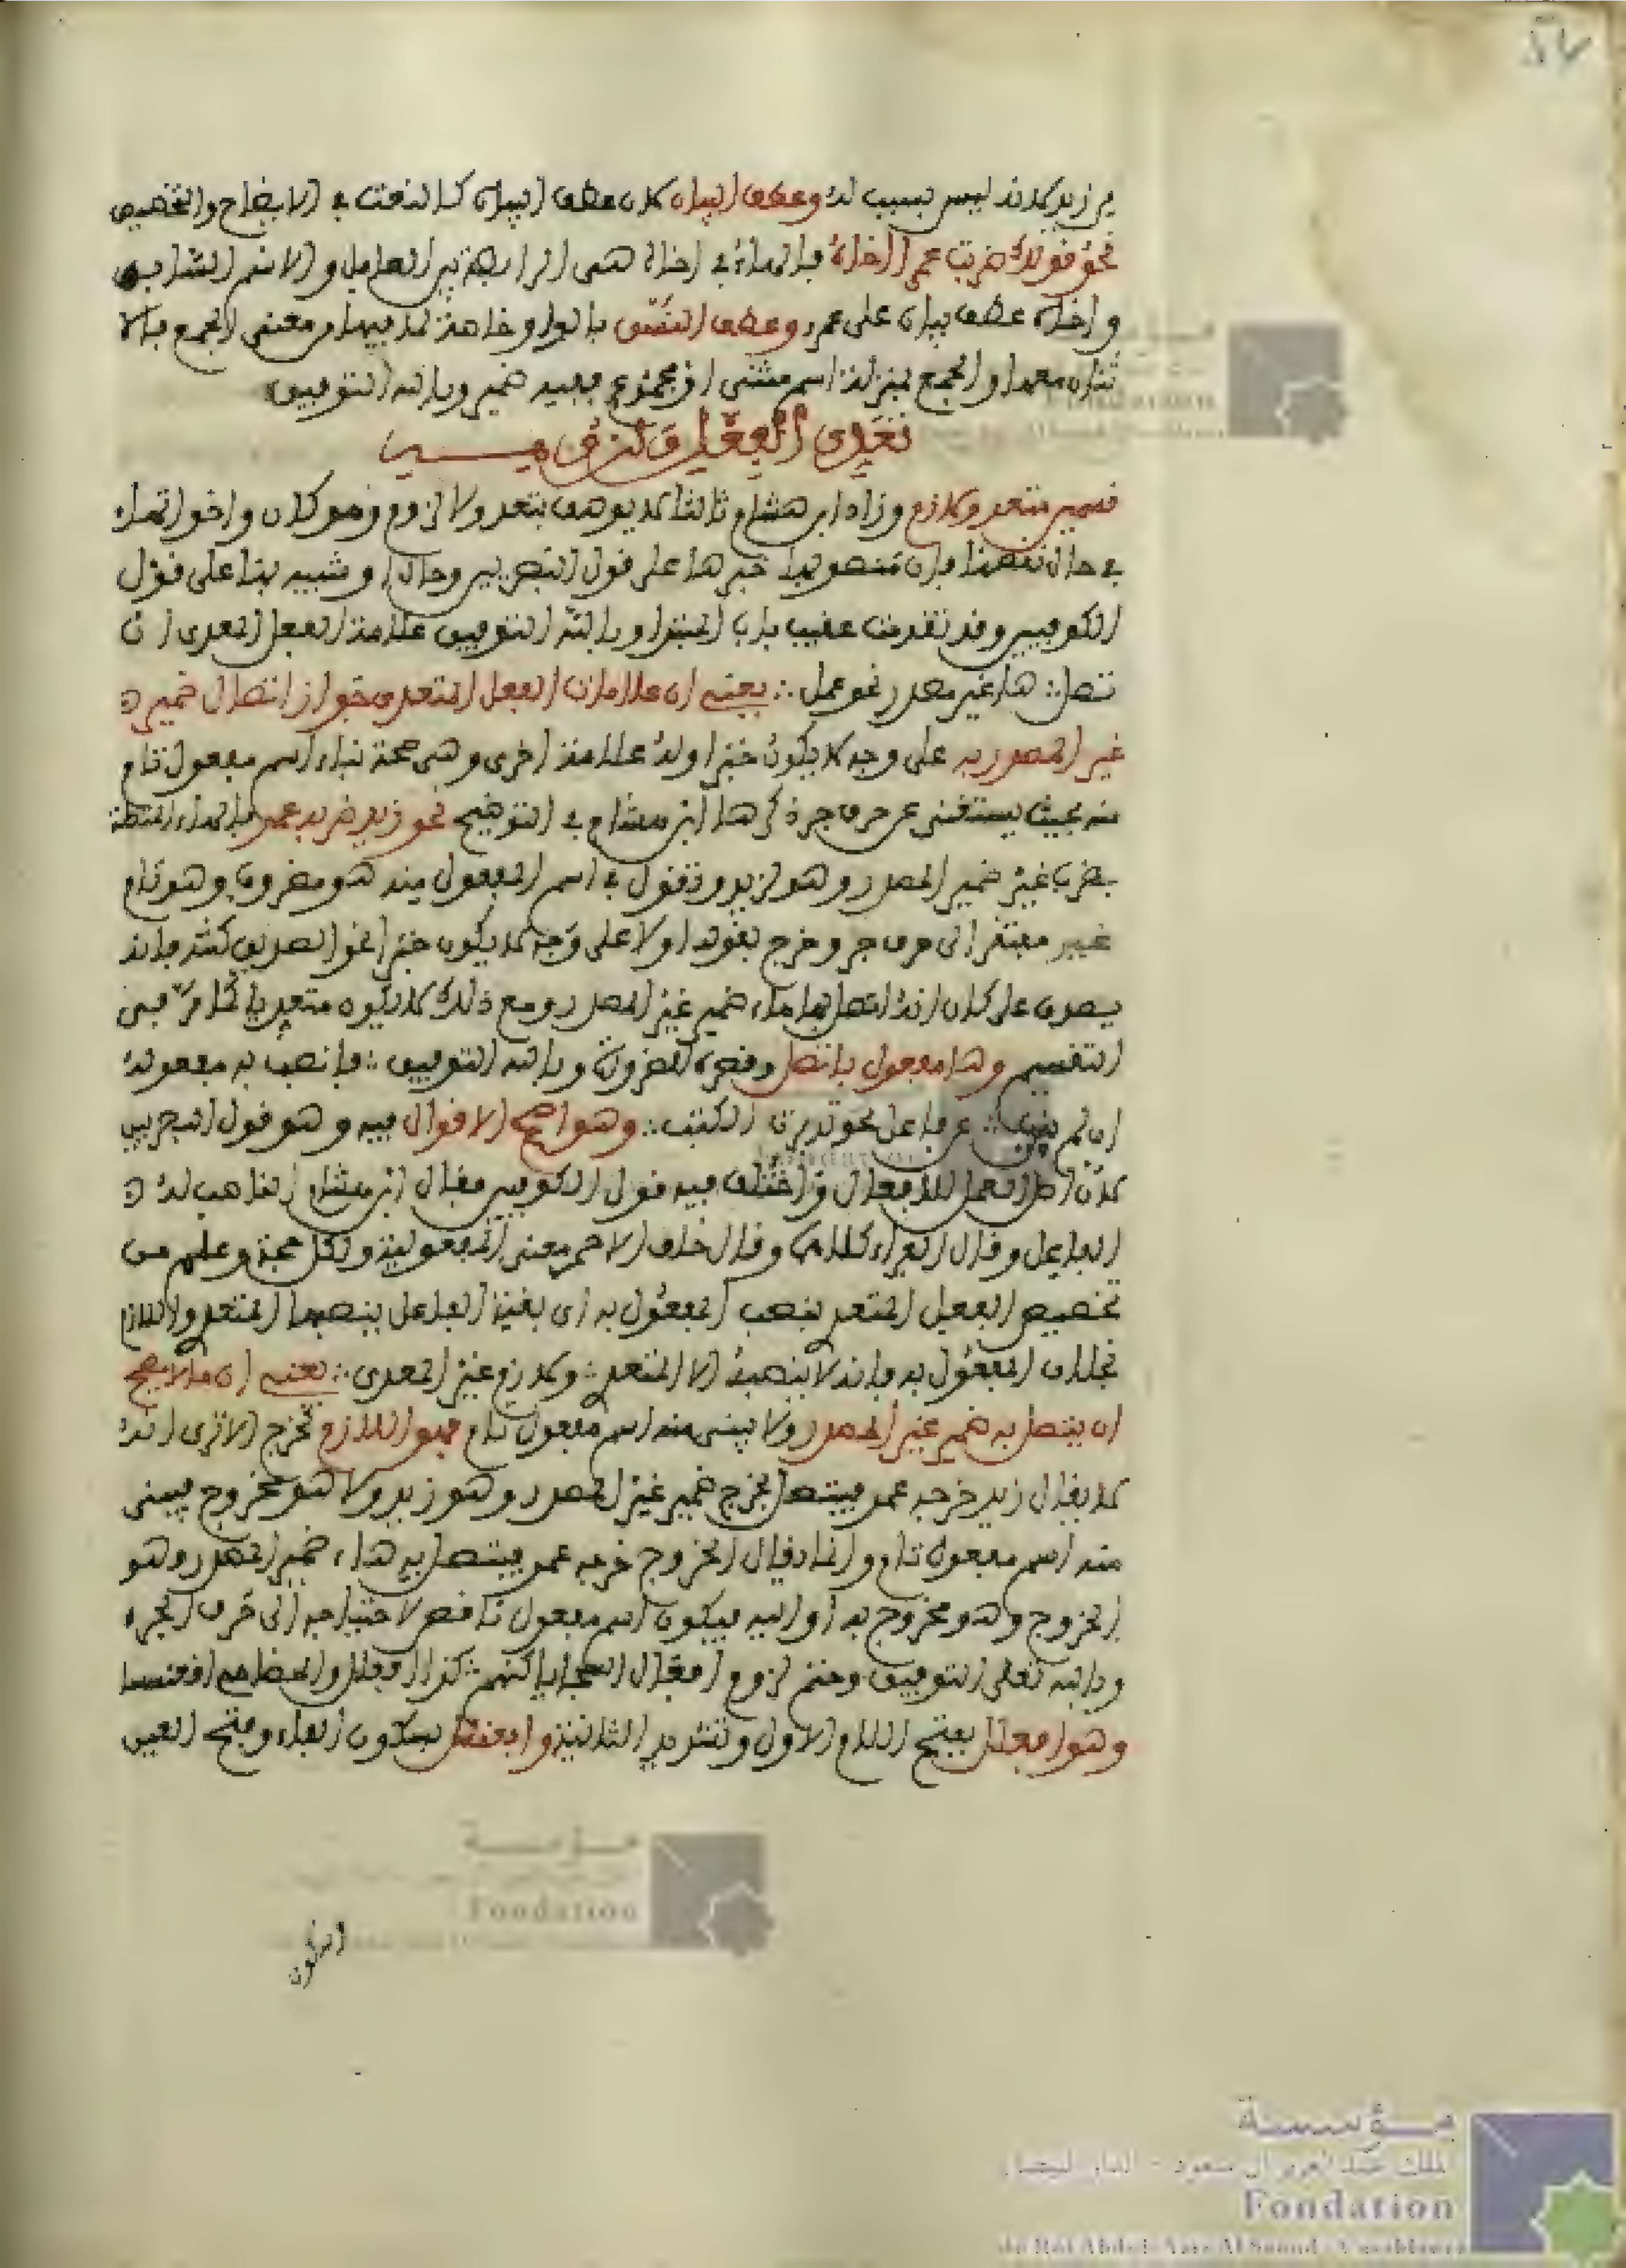 من زيد لانه ليس بسبب له وعطف البيان لان عطف البيان كالنعت في الايضاح والتخصيص
نحو قولك ضربت عمرا اخاه فالهاء في اخاه هي الرابطة بين العامل والاسم السابق
واخاه عطف بيان على عمر وعطف النسق بالواو خاصة لما فيها من معنى الجمع فالا
ثنان معها والجمع بمنزلة اسم مثنى او مجموع فيه ضمير وبالله التوفيق
تعدي الفعل ولزومه
قسمين متعد ولازم وزاد ابن هشام ثالثا لا يوصف بتعد ولا لزوم وهو كان واخواتها
في حال نقصها فان منصوبها خبرها على قول البصريين وحال او شبيه بها على قول
الكوفيين وقد تقدمت عقيب باب المبتدا وبالله التوفيق علامة الفعل المعدى ان
تصل : ها غير مصدر نحو عمل : يعني ان علامات الفعل المتعدي جواز اتصال ضمير
غير المصدر به على وجه لا يكون خبرا وله علامة اخرى وهي صحة بناء اسم مفعول تام
منه بحيث يستغنى عن حرف جر ذكرها ابن هشام في التوضيح نحو زيد ضربه عمر فالهاء المتصلة
بضرب غير ضمير المصدر وهو لزيد وتقول في اسم المفعول منه هو مضروب وهو تام
غير مفتقر الى حرف جر وخرج بقوله اولا على وجه لا يكون خبرا نحو الصديق كنته فانه
يصدق على كان انه اتصل بها هاء ضمير غير المصدر ومع ذلك لا يكون متعديا كما مر في
التقسيم وها مفعول باتصل وقصره للضرورة وبالله التوفيق : فانصب به مفعوله
ان لم ينب : عن فاعل نحو تدبرت الكتب : وهو اصح الاقوال فيه وهو قول البصريين
لان اصل العمل للافعال واختلف فيه قول الكوفيين فقال ابن هشام الناصب له
الفاعل وقال الفراء كلاهما وقال خلف الاحمر معنى المفعولية ولكل حجة وعلم من
تخصيص الفعل المتعد بنصب المفعول به ان بقية الفاعل ينصبها المتعد واللازم
بخلاف المفعول به فانه لا ينصبه الا المتعد : ولازم غير المعدى : يعني ان ما لا يصح
ان يتصل به ضمير غير المصدر ولا يبنى منه اسم مفعول تام فهو اللازم كخرج الا ترى انه
لا يقال زيد خرجه عمر فيتصل بخرج ضمير غير المصدر وهو زيد ولا هو مخروج فيبنى
منه اسم مفعول تام وانما يقال الخروج خرجه عمر فيتصل به هاء ضمير المصدر وهو
الخروج وهو مخروج به او اليه فيكون اسم مفعول ناقص لاحتياجه الى حرف الجر
وبالله تعالى التوفيق وحتم لزوم افعال السجايا كنهم : كذا افعلل والمضاهي اقعنسسا
وهو افعلل بفتح اللام الاولى وتشديد الثانية وافعنلل بسكون الفاء وفتح العين
مؤسسة
الملك عبد العزيز آل سعود - الدار البيضاء
Fondation
du Roi Abdul-Aziz Al Saoud - Casablanca